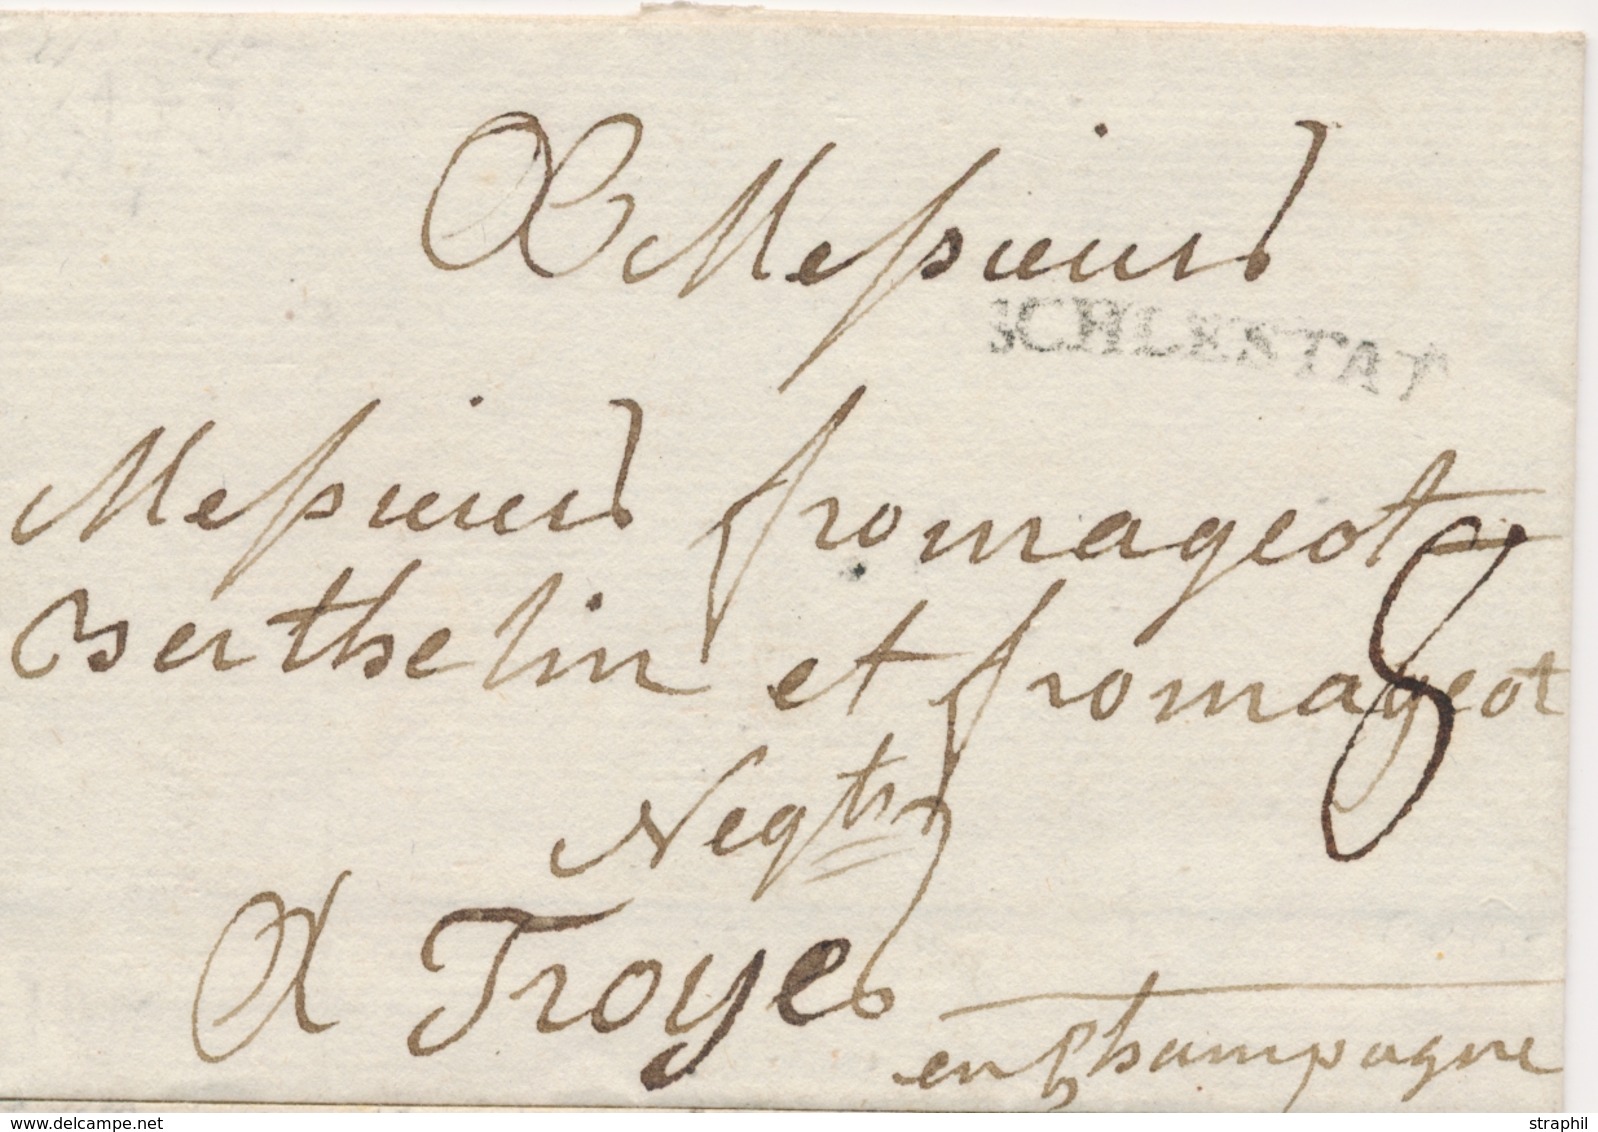 A Messieurs
SCHLESTAT
Messieurs fromageot
Berthelin et fromageot
8
Negts
A Troyes
en Champagne
www.delcampe.net
straphil